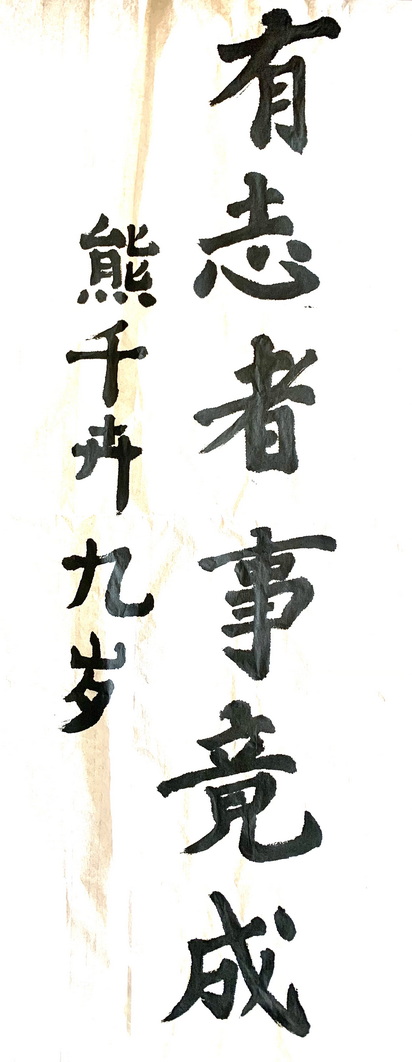 有志者事竟成
熊千卉九岁